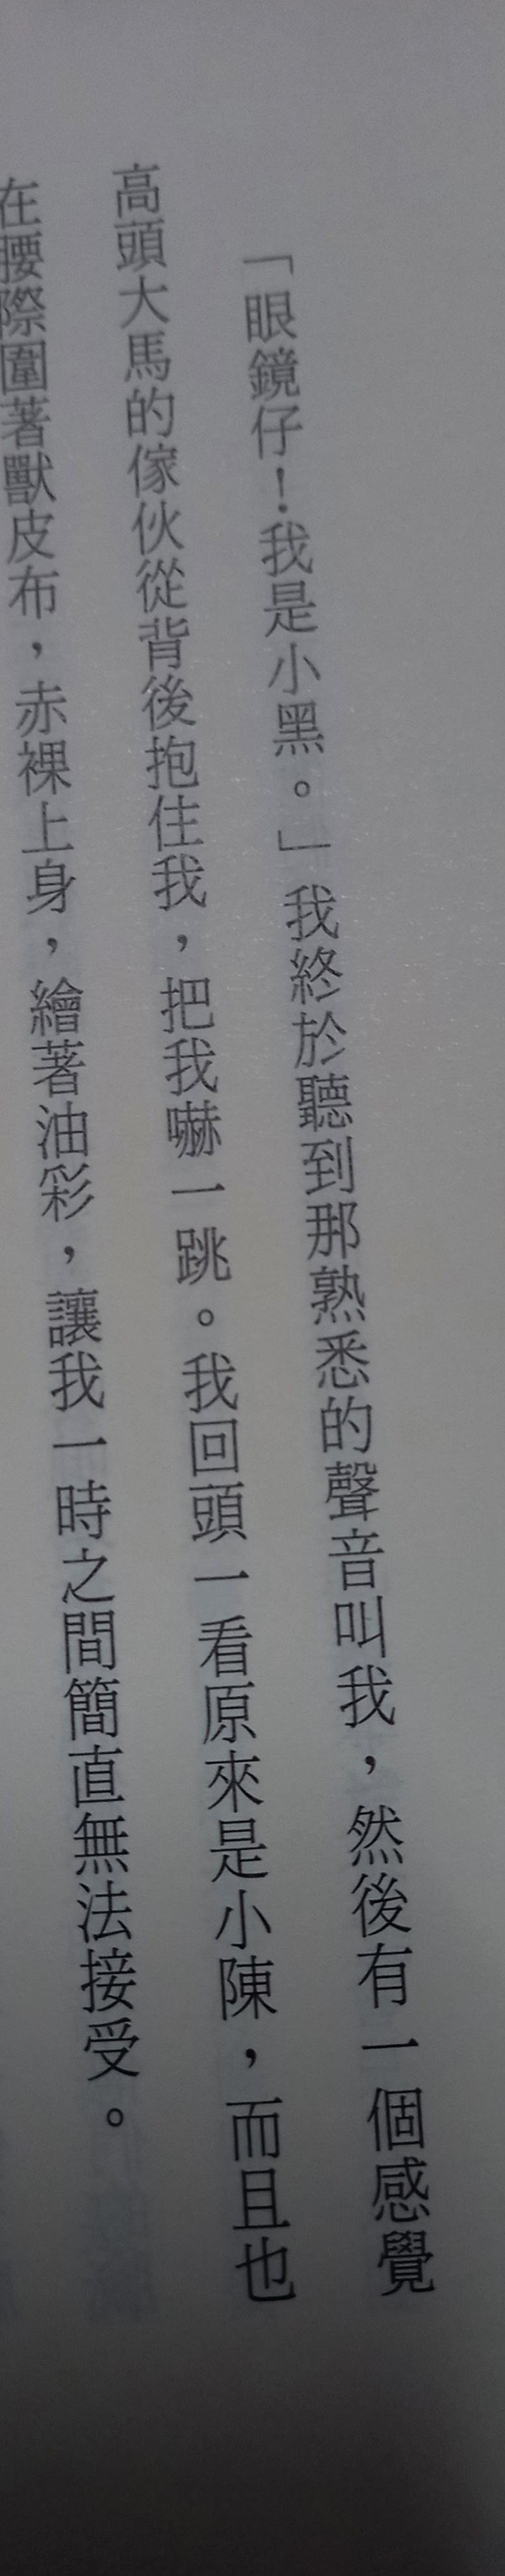 「眼鏡仔！我是小黑。」我終於聽到那熟悉的聲音叫我，然後有一個感覺
高頭大馬的傢伙從背後抱住我，把我嚇一跳。我回頭一看原來是小陳，而且也
在腰際圍著獸皮布，赤裸上身，繪著油彩，讓我一時之間簡直無法接受。